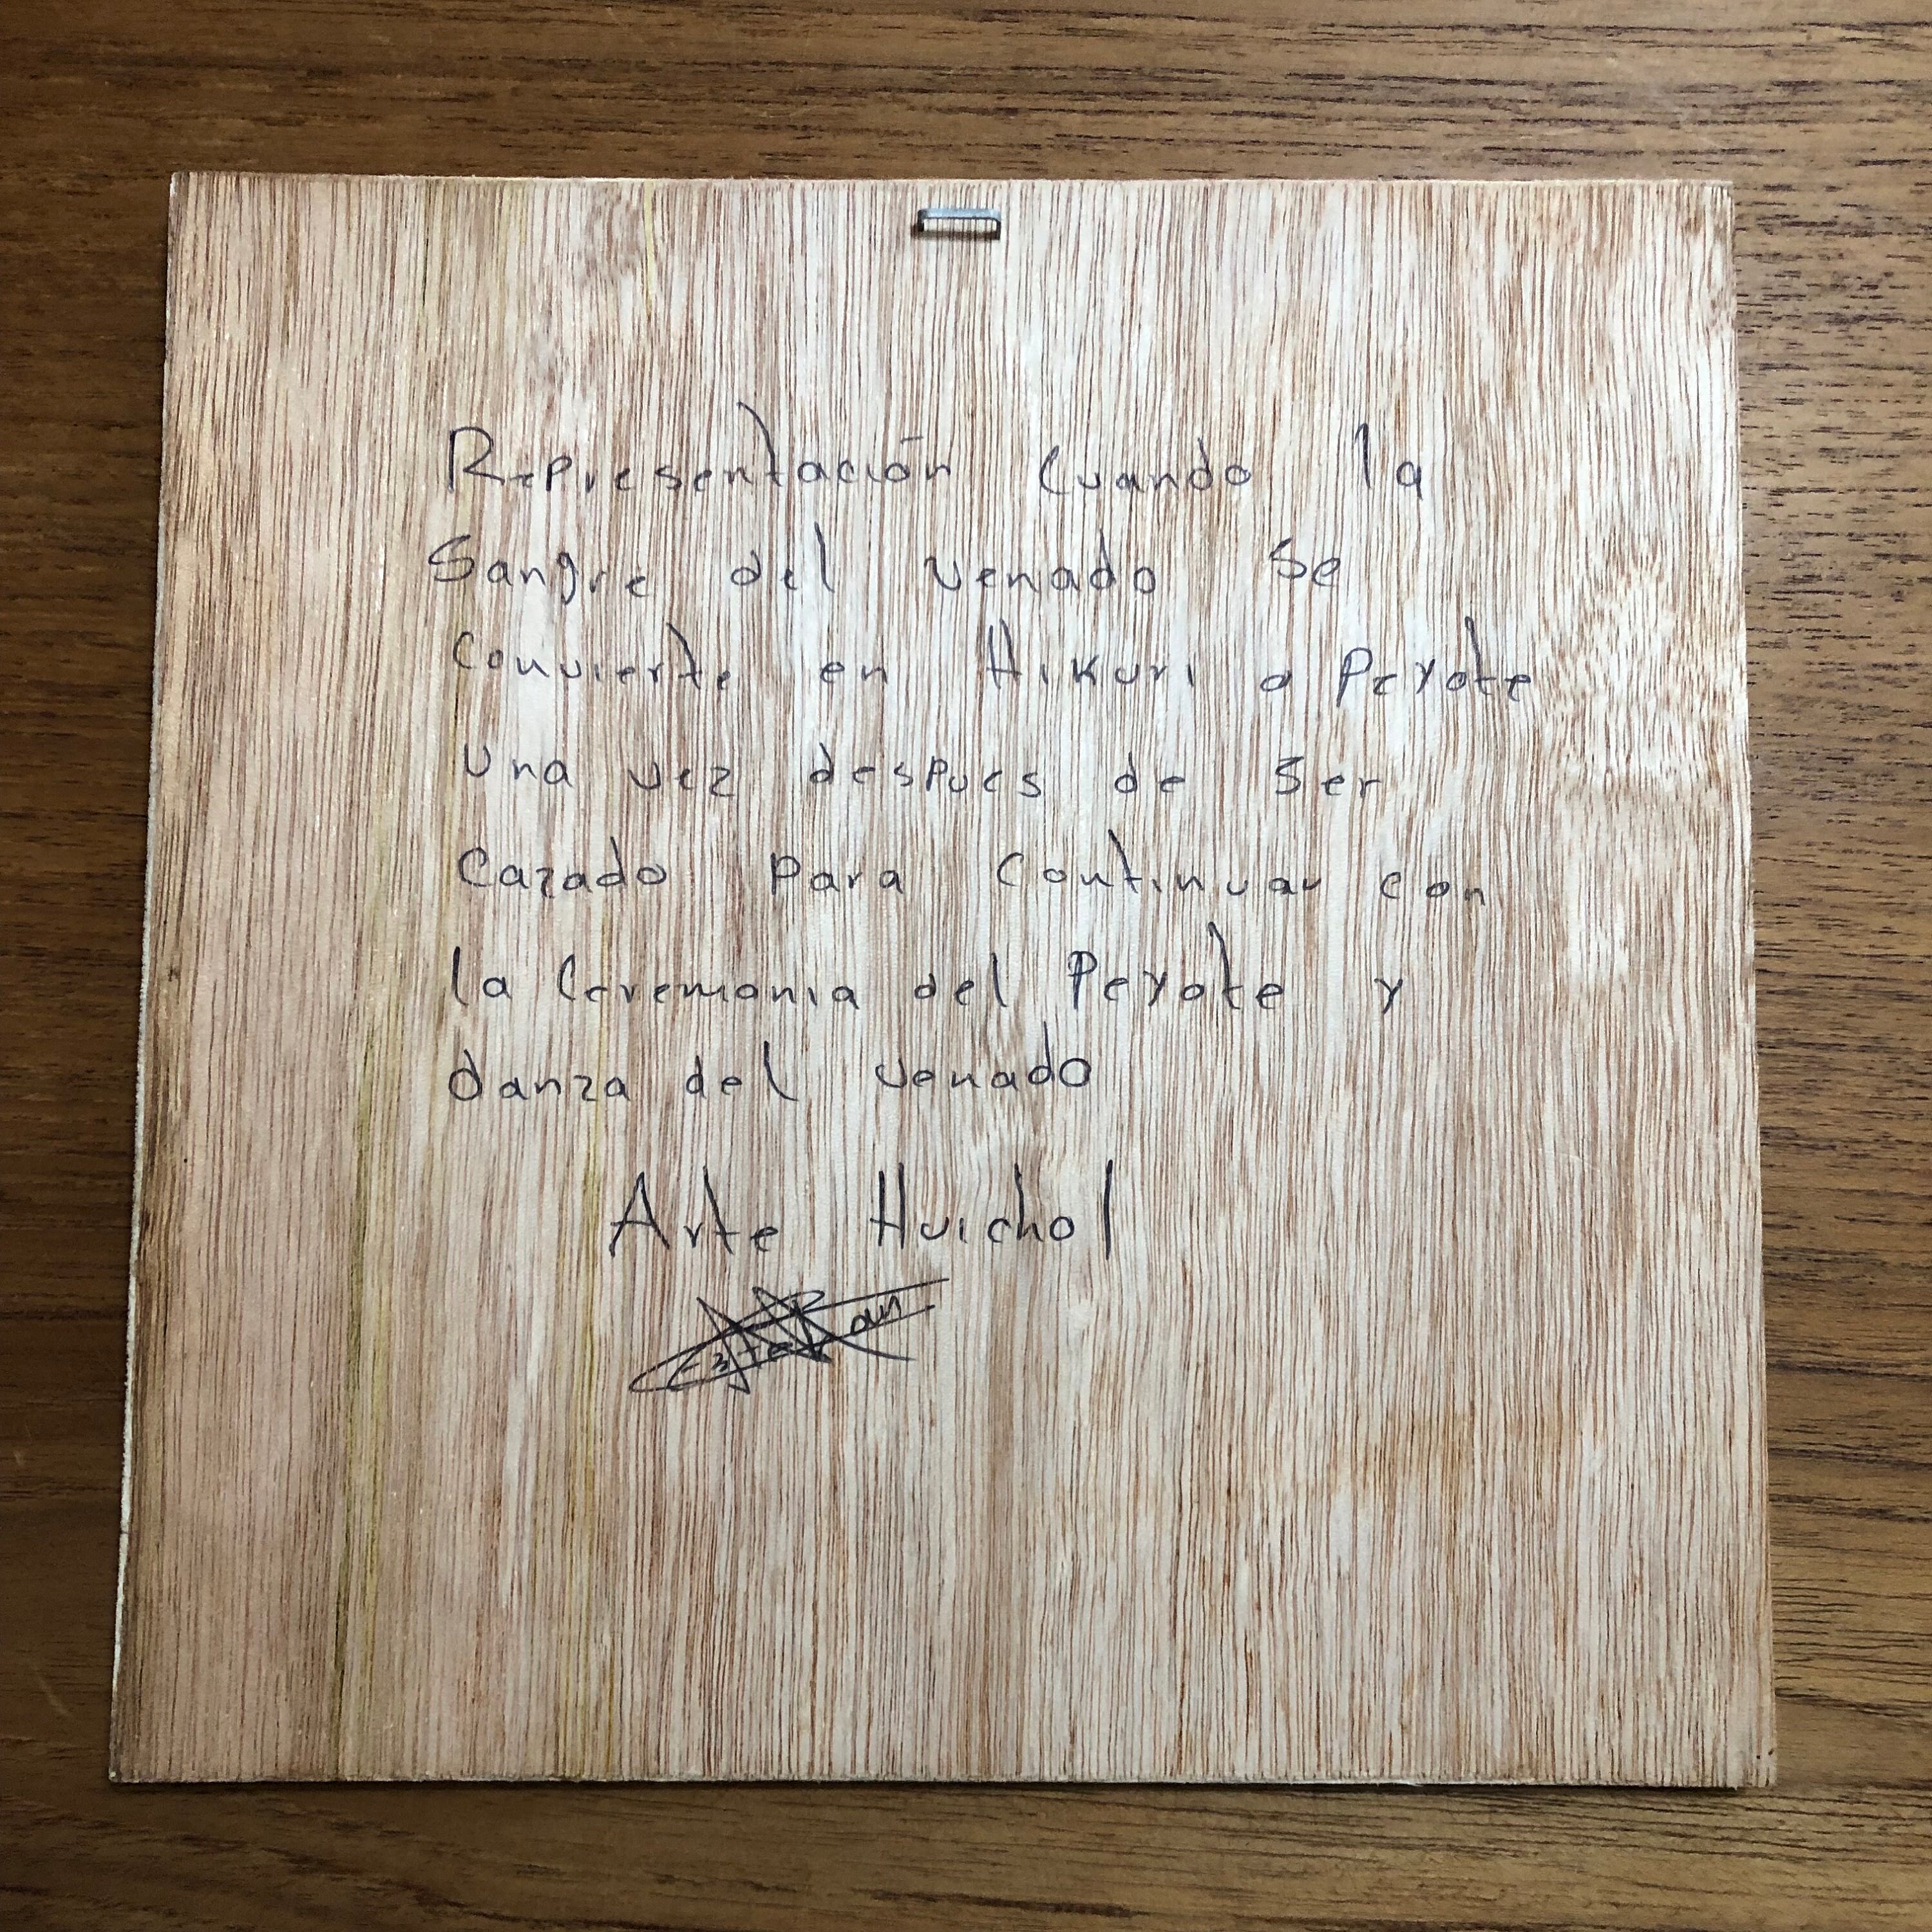 Representación Cuando la
Sangre del venado Se
Convierte en Hikuri o Peyote
Una vez despues de Ser
Cazado Para Continuar con
la Ceremonia del Peyote y
danza del venado
Arte Huichol